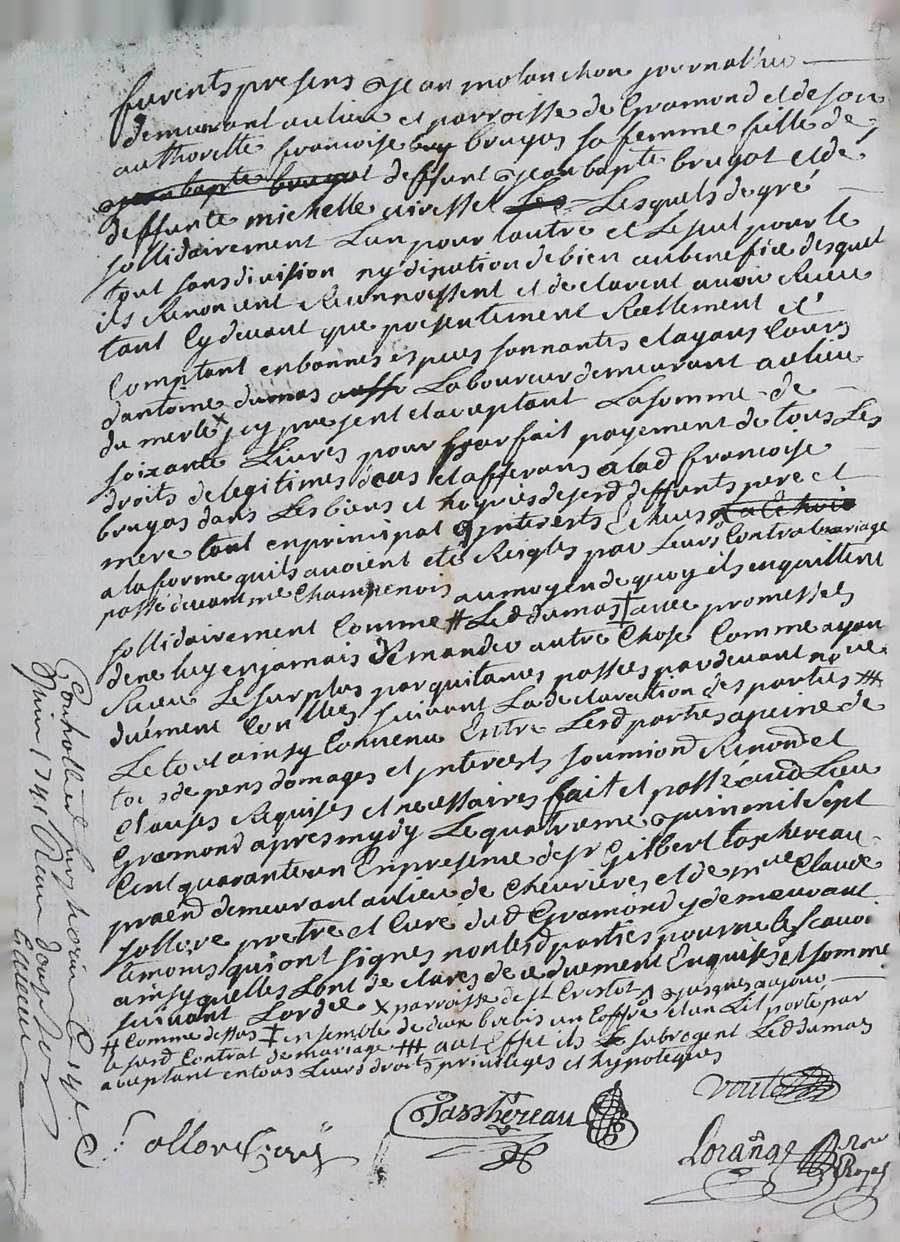 furents presens Jean molanchon journallier
demeurant au lieu et parroisse de Gramond et de son
authoretté francoise bru bruyas sa femme fille de
jean bapte bruyat deffunt Jean bapte bruyat et de
deffunte michelle Les quels de gré
sollidairement Lun pour lautre et Le seul pour le
tout sans division ny disution de bien au benefice desquel
ils Renoncent Reconnoissent et declarent avoir Receu
tant Cy devant que presentement Reellement et
Comptant en bonnes especes sonnantes et ayans Cours
dantoine dumas Laboureur demeurant au lieu
du merle x jcy present et aceptant La somme de
soixante Livres pour parfait payement de tous Les
droits de legitimes deus et afferans a lad francoise
bruyas dans Les biens et hoyries desesd deffunts pere et
mere tant en principal qjnterests Echeus
a la forme quils avoient eté Reigles par Leurs Contrat mariage
passé devant me Champenois au moyen de quoy ils en quittent
sollidairement Comme # Led dumas ‡ avec promesse
de ne luy en jamais Demander autre Chose Comme ayan
Receu Le surplus par quitances passées par devant no re
duëment Conllées suivant La declaration des parties ##
Le tout ainsy Convenu Entre Lesd parties a peine de
tous depens domages et jnterests soumiond Renond et
Clauses Requises et necessaires fait et passé aud Lieu
Gramond apres mydy Le quatrieme juin mil sept
Cent quarante un En presence de sr Gilbert taschereau
praend demeurant au lieu de Chevrières et de mre Claude
sollore pretre et Curé dud Gramond y demeurant
témoins qui ont signés non lesd parties pour ne le scavoi
ainsy quelles sont declarés de ce duement Enquises et somme
suivant Lordce x parroisse de st Cristot ^ jusques aujourd
# Comme dessus ‡ ensemble de deux brebis un Coffre et un Lit porté par
le susd Contrat de mariage ## a cet Effet ils Le subrogent Led dumas
aceptant en tous Leurs droits privileges et hypoteques
Sollore Curé
Taschereau
Lorange nore Royal
Conttrollé a st
juin 1741 Receu douze sol